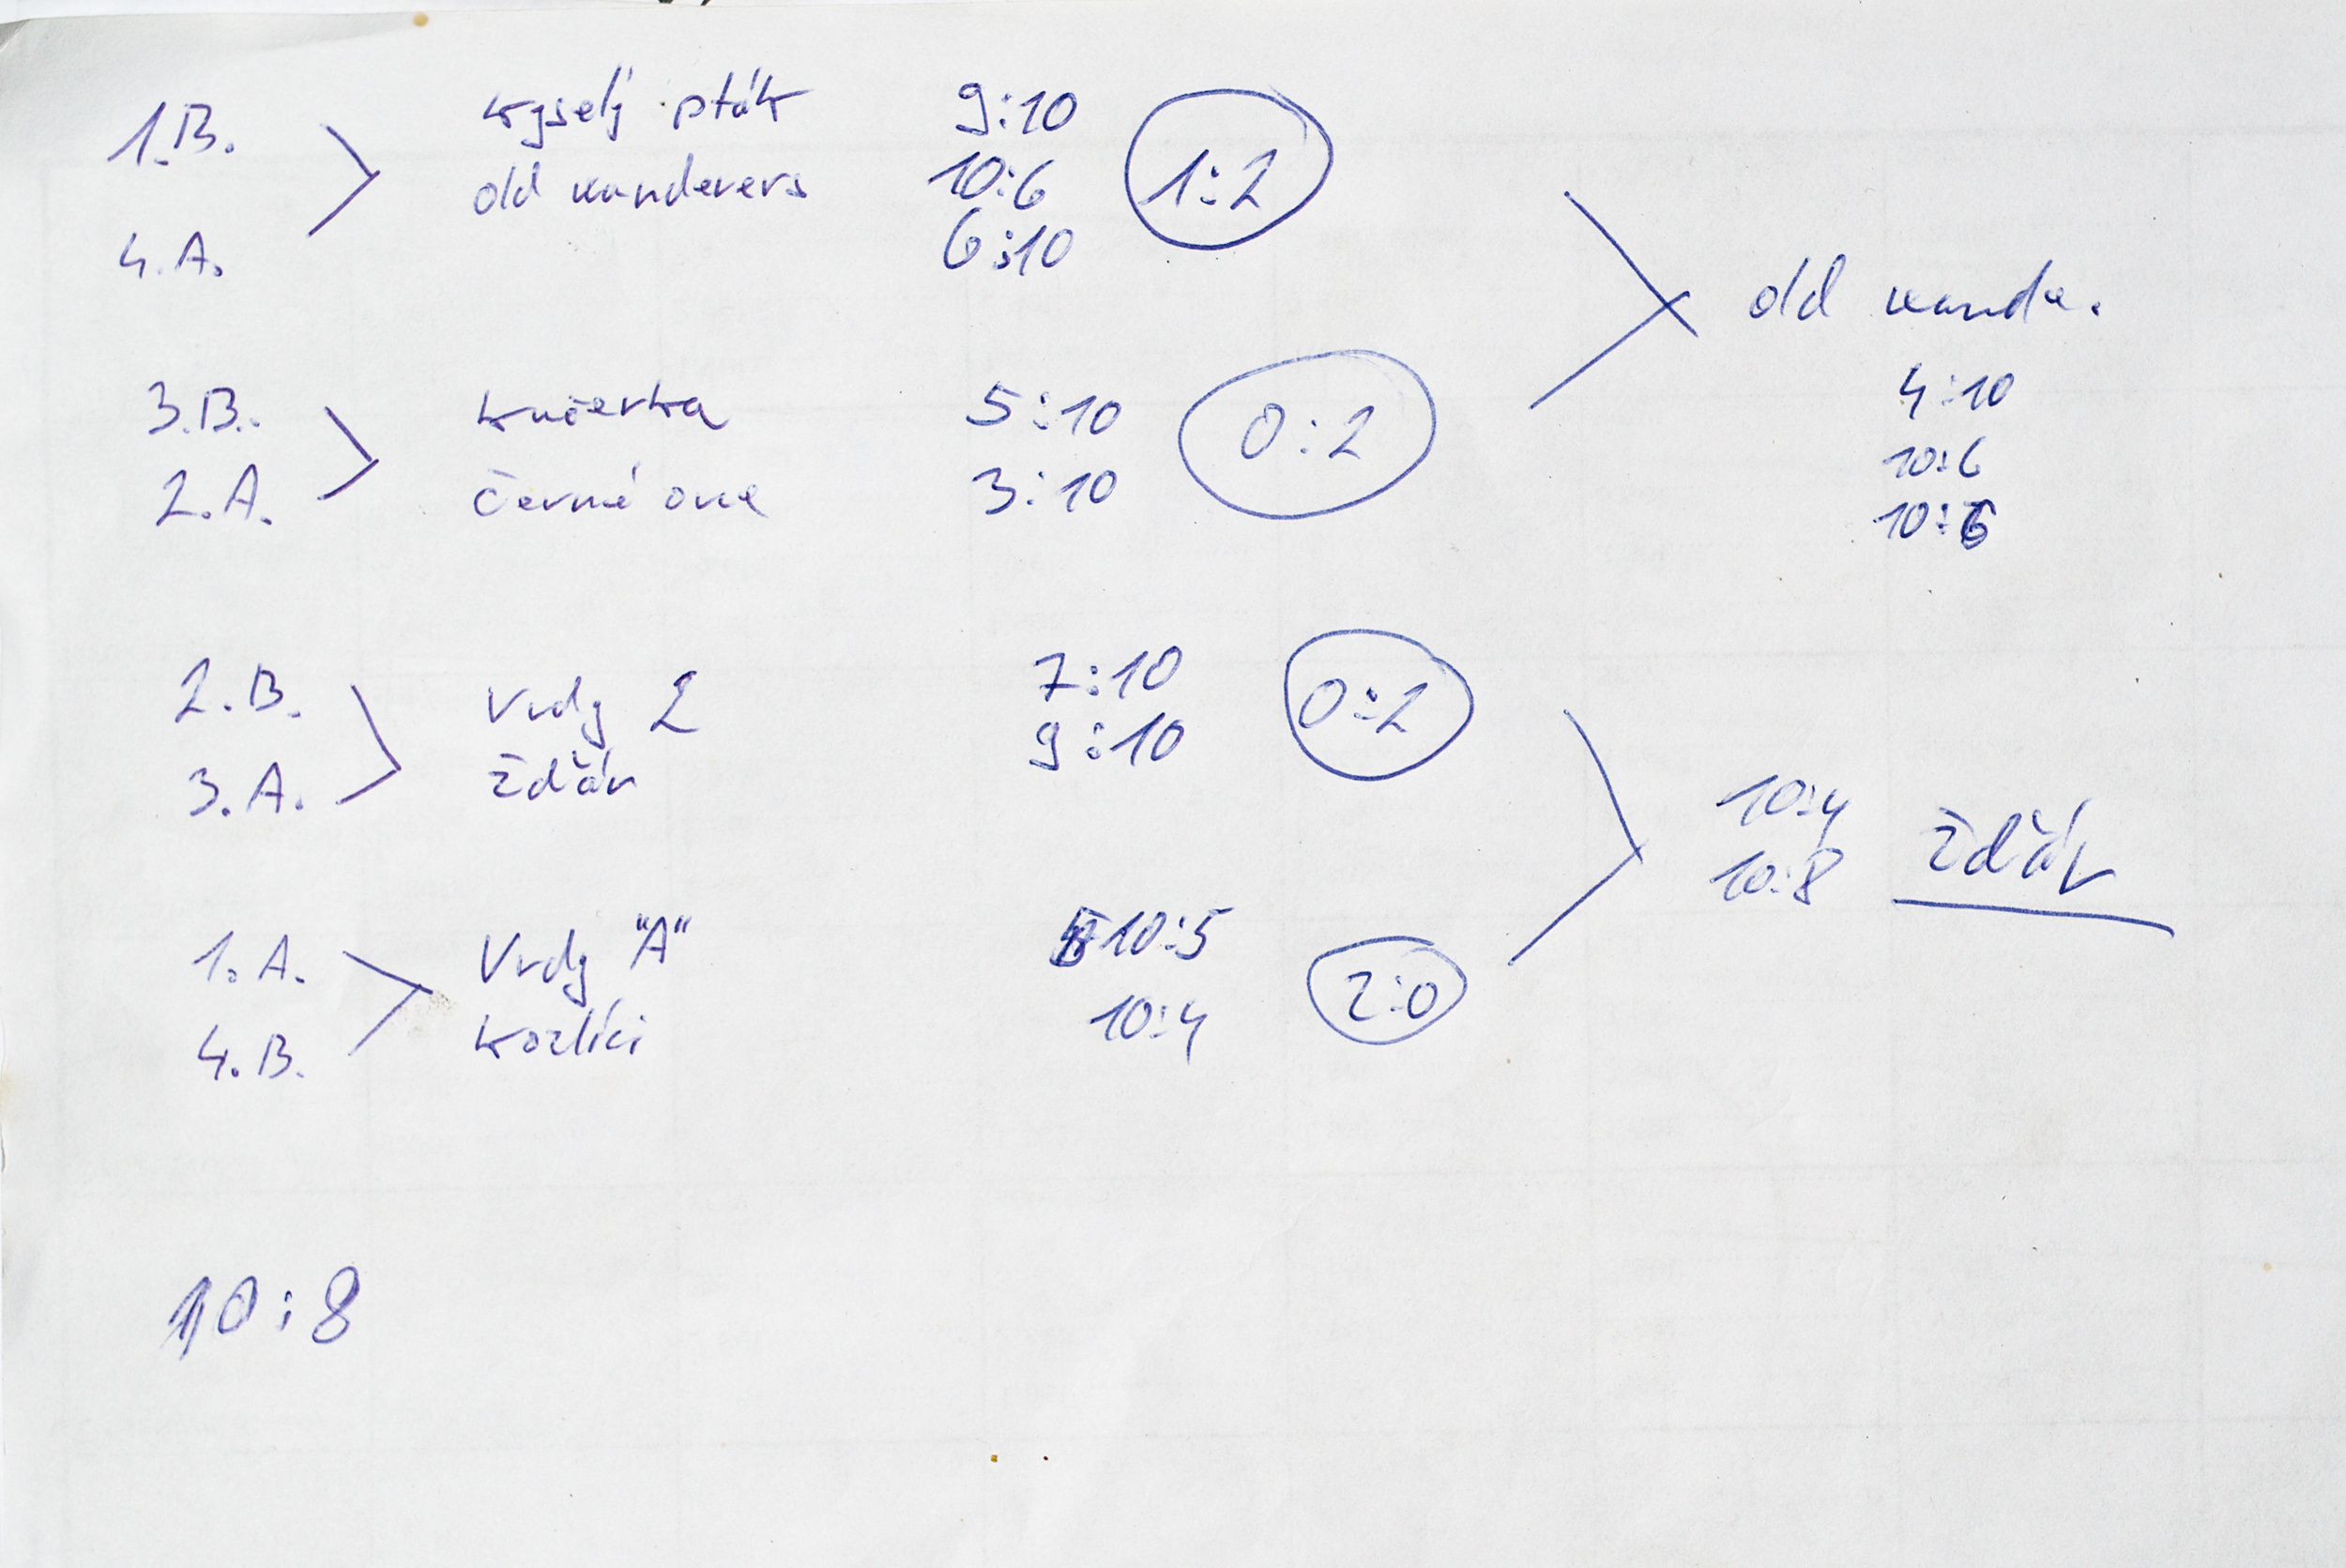 1.B. kyselý pták 9:10
old wanderers 10:6 1:2
4.A. 6:10
old wande.
4:10
10:6
10:6
3.B. kučerka 5:10 0:2
2.A. černé ovce 3:10
2.B. Vrdy 2 7:10 0:2
3.A. ždár 9:10
10:4
10:8 ždár
1.A. Vrdy "A" 10:5
4.B. kozlíci 10:4 2:0
10:8